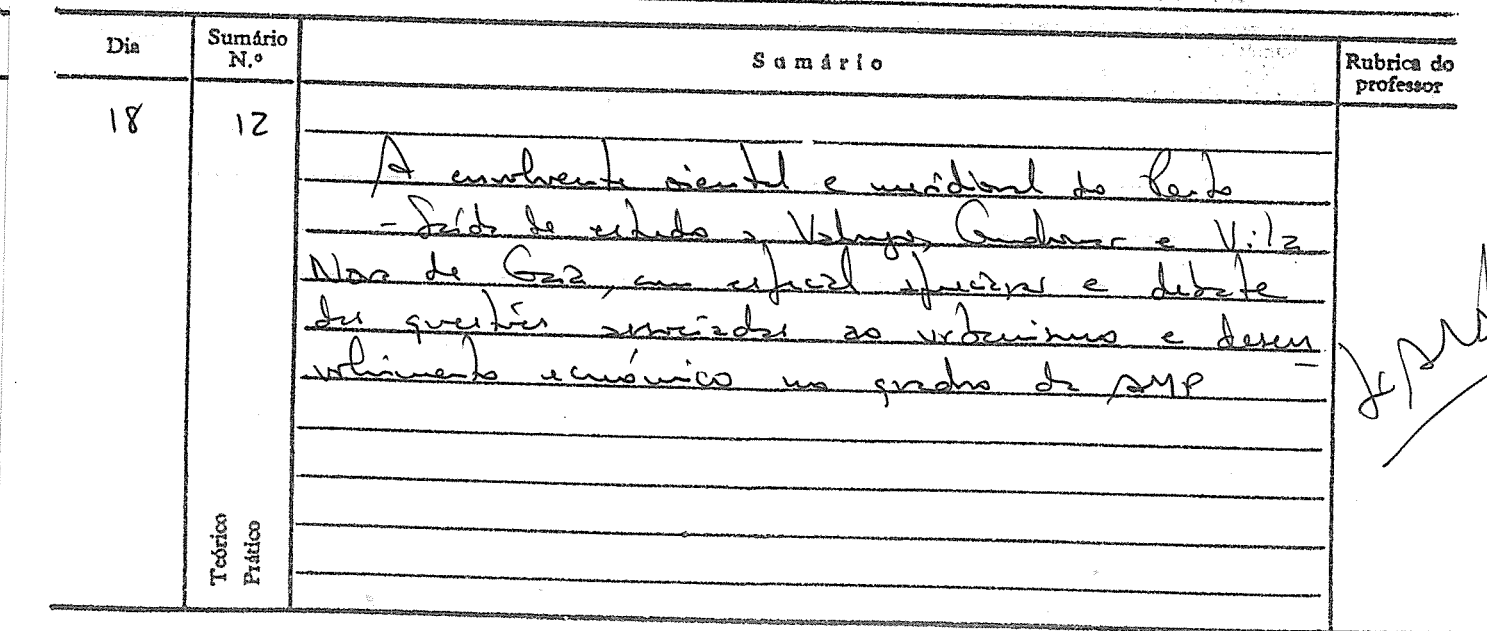 Dia
Sumário
N.º
Sumário
Rubrica do
professor
18
12
A envolvente oriental e meridional do Porto
- Saída de estudo a Valongo, Gondomar e Vila
Nova de Gaia, com especial atenção e debate
das questões associadas ao urbanismo e desen
volvimento económico no quadro da AMP
Teórico
Prático